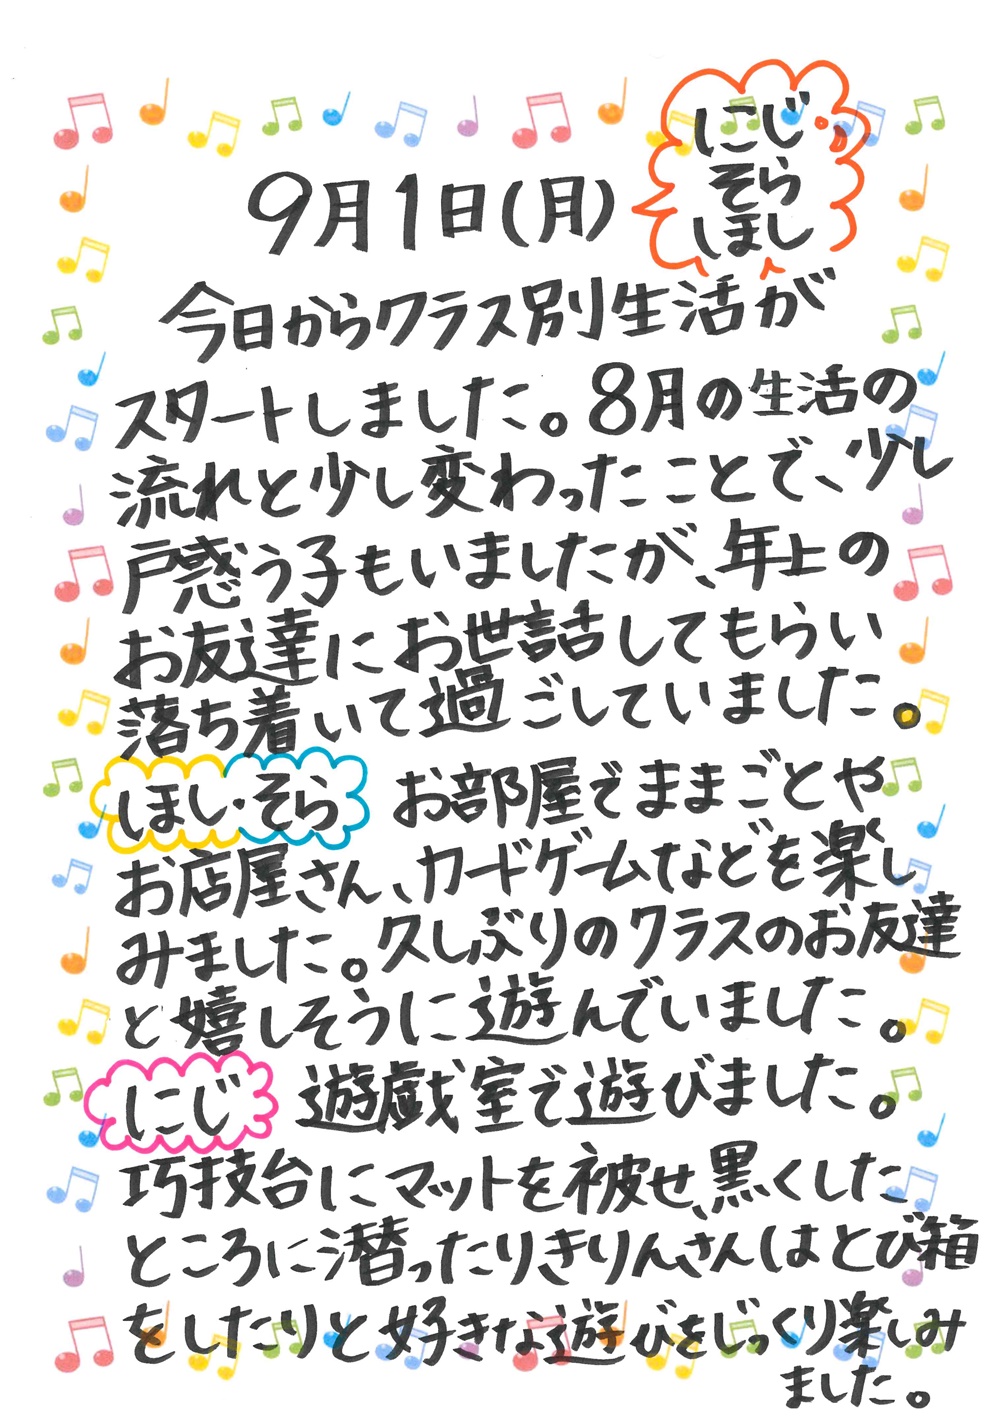 にじ
そら
ほし
9月1日(月)
今日からクラス別生活が
スタートしました。8月の生活の
流れと少し変わったことで、少し
戸惑う子もいましたが、年上の
お友達にお世話してもらい
落ち着いて過ごしていました。
ほし・そら お部屋でままごとや
お店屋さん、カードゲームなどを楽し
みました。久しぶりのクラスのお友達
と嬉しそうに遊んでいました。
にじ 遊戯室で遊びました。
巧技台にマットを被せ、黒くした
ところに潜ったりきりんさんはとび箱
をしたりと好きな遊びをじっくり楽しみ
ました。